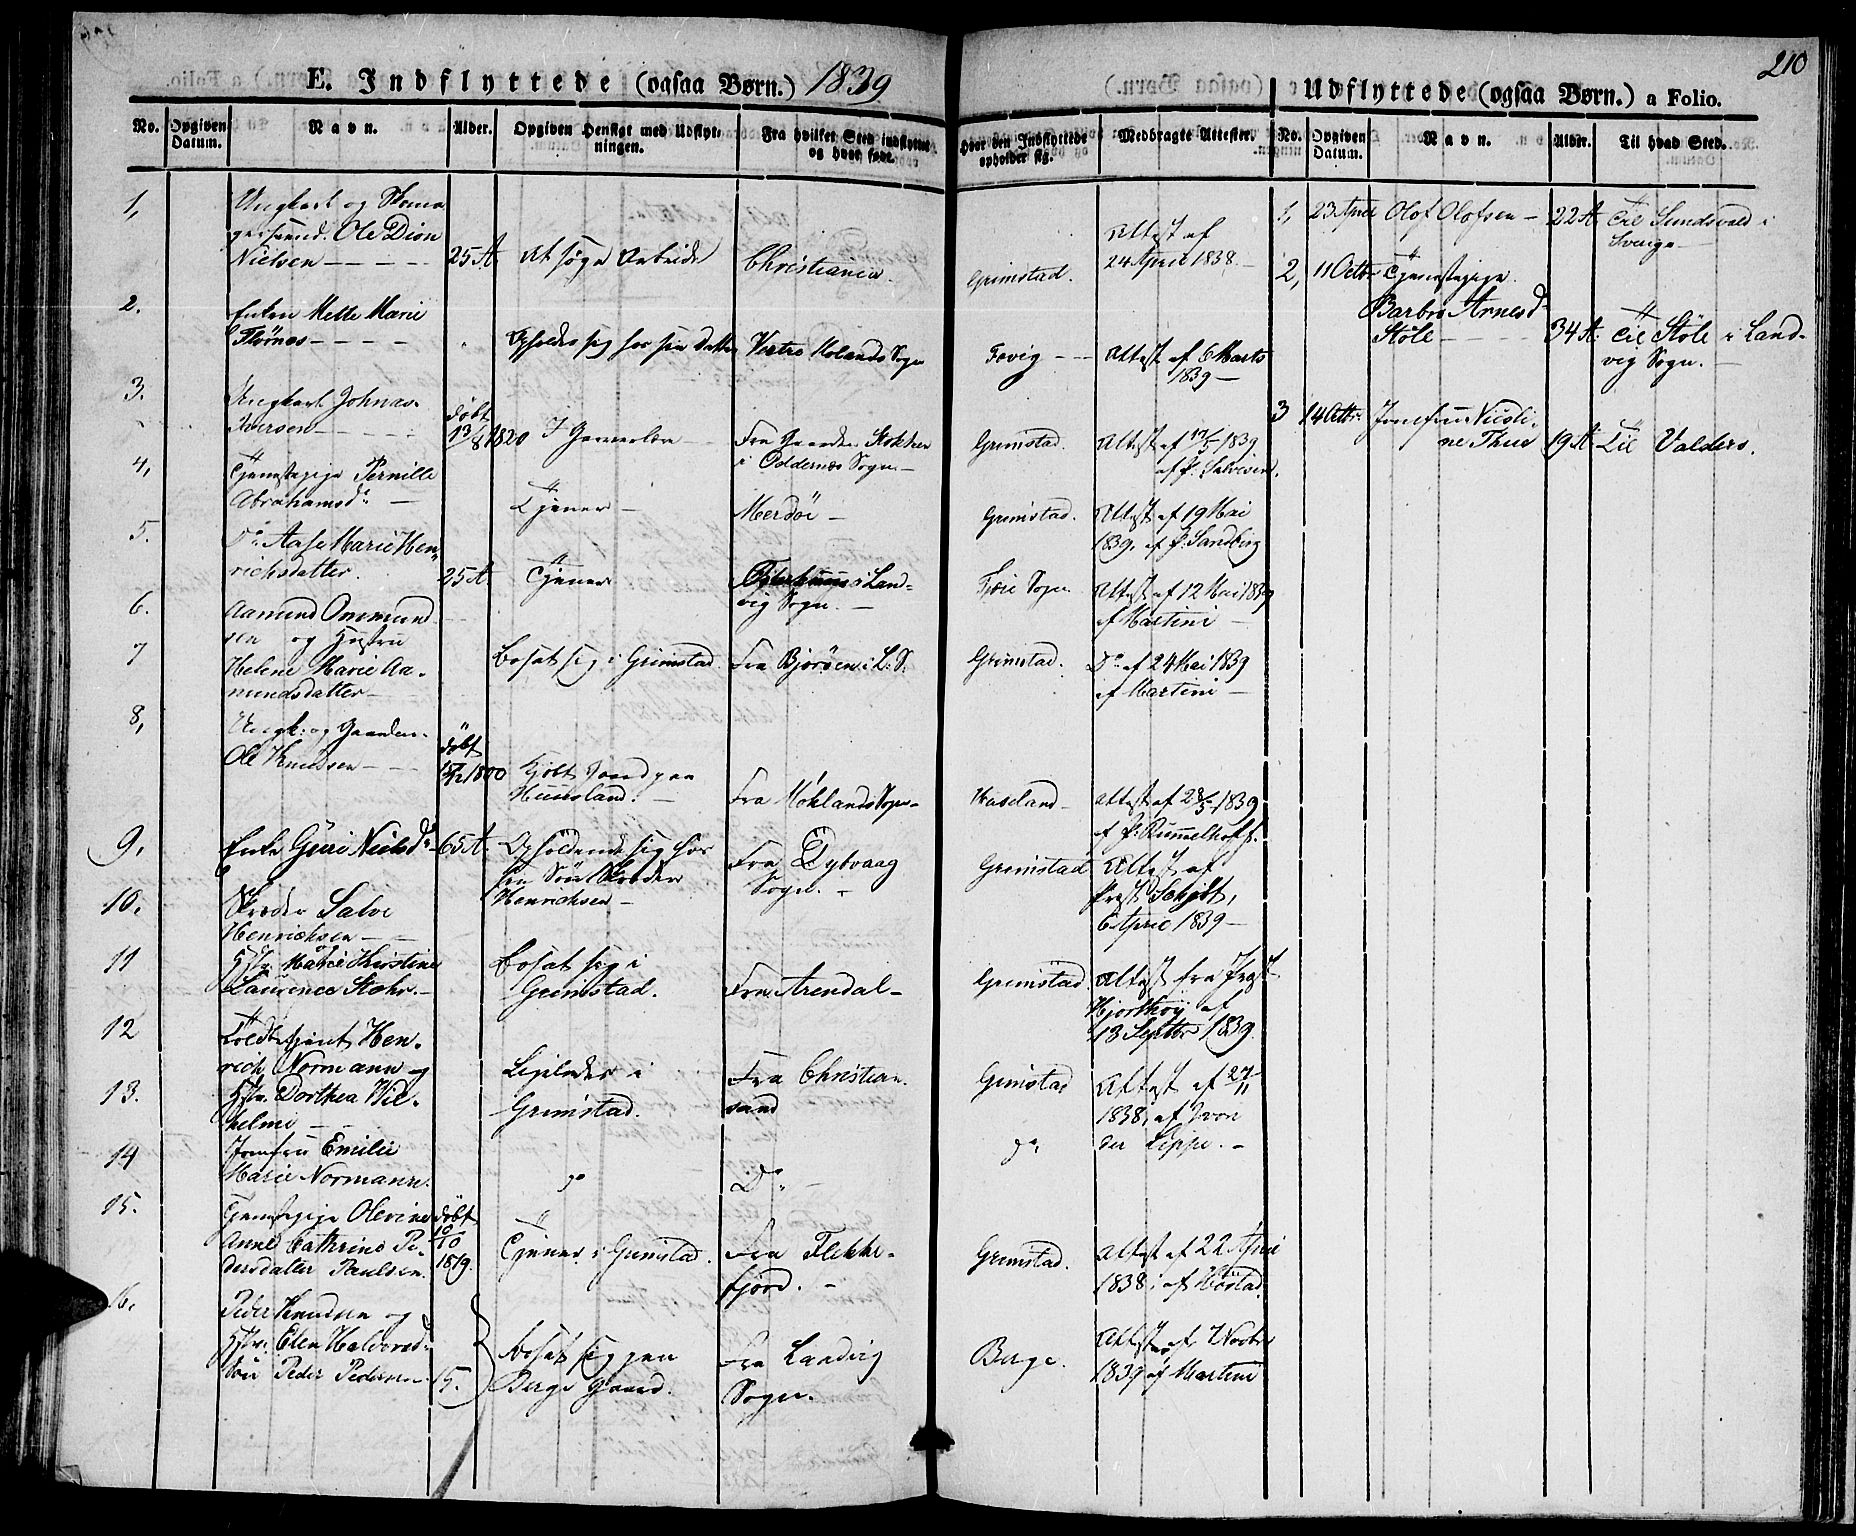 210
E. Indflyttede (ogsaa Børn.) 1839
Udflyttede (ogsaa Børn.) a Folio.
No. Opgiven Datum. Navn. Alder. Opgiven Hensigt med Udflytningen. Fra hvilket Sted indflyttet og hvor født. Hvor den Indflyttede opholder sig. Medbragte Attester. No. Opgiven Datum. Navn. Alder. Til hvad Sted.
1,
Ungkarl og Skoma-
gersvend. Ole Dion
Nielsen — 25 A. At søge Arbeide Christiania. Grimstad. Attest af
24 April 1838.
2.
Enken Mette Marie
Flørnes — Opholder sig hos sin Datter Vestre Molands Sogn Fevig — Attest af 6 Marts
1839 —
3.
Ungkarl Johnas
Iversen — døbt
13/8 1820 I Garverlære — Fra Gaarden Stokken
i Oddernes Sogn — Grimstad. Attest af 17/5 1839
af P. Salvesen.
4,
Tjenestepige Pernille
Abrahamsdr — Tjener — Merdöe — Grimstad. Attest af 19 Mai
1839, af P: Sandberg
5.
Do Aase Marie Hen-
richsdatter. 25 A. Tjener i Land-
vig Sogn. — Fjære Sogn Attest af 12 Mai 1839
af Martini —
6.
Aamund Ommund-
sen og Hustru
7
Helene Marie Aa-
mundsdatter — bosat sig i Grimstad. Fra Bjorøen i L: S. Grimstad. Do af 24 Mai 1839
af Martini —
8,
Ungk: og Gaardm.
Ole Knudsen — døbt
1800 Kjøbt Jord paa
Huusland. — Fra Moklands Sogn — Haseland — Attest af 28/5 1839
af P: Rummelhoff.
9,
Enke Guri Nielsdr 65 A. Opholdende sig hos
sin Søn Skræder
Henrichsen — Fra Dybvaag
Sogn. — Grimstad Attest af
Præst Schjøt,
6 April 1839 —
10.
Skræder Salve
Henrichsen —
11
og
Hstr. Marie Kirstine
Laurence Stohr. — bosat sig i
Grimstad. Fra Arendal — Grimstad. Attest fra Præst
Hjorthøy af
18 Septbr 1839.
12
Toldbetjent Hen-
rich Normann og
13.
Hstr. Dorthea Wil-
helmi — Ligeledes i
Grimstad. Fra Christian-
sand Grimstad Attest af 27/11
1838, af J von
der Lippe. —
14
Jomfru Emilie
Marie Normann. do Do — do
15.
Tjenestepige Olevine
Anne Cathrine Pe-
dersdatter Paulsen. døbt
10/10
1819. Tjener i Grimstad. Fra Flekke-
fjord. — Grimstad. Attest af 22 April
1838, af
16.
Peder Knudsen og
Hstr. Elen Halvorsdr
Søn Peder Pedersen 5. bosat sig paa
Berge Gaard. Fra Landvig
Sogn. Berge. Attest af 7 Novbr
1839 af Martini
1, 23 April Olof Olofsen — 22 A. Til Sundsvald i
Sverige —
2, 11 Octbr Tjenestepige
Barbro Arnesdr
Støle — 34 A. Til Støle i Land-
vig Sogn. —
3 14 Octbr Jomfru Nicoli-
ne Thue 19 A. Til Valders.